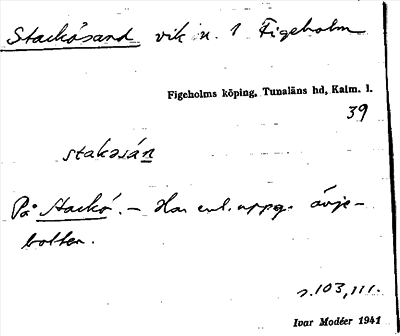 Stackösand vik n. 1 Figeholm
Figeholms köping, Tunaläns hd, Kalm. l.
39
stakəsán
På Stackö. – Har enl. uppg. ävje-
botten.
s. 103, 111.
Ivar Modéer 1941